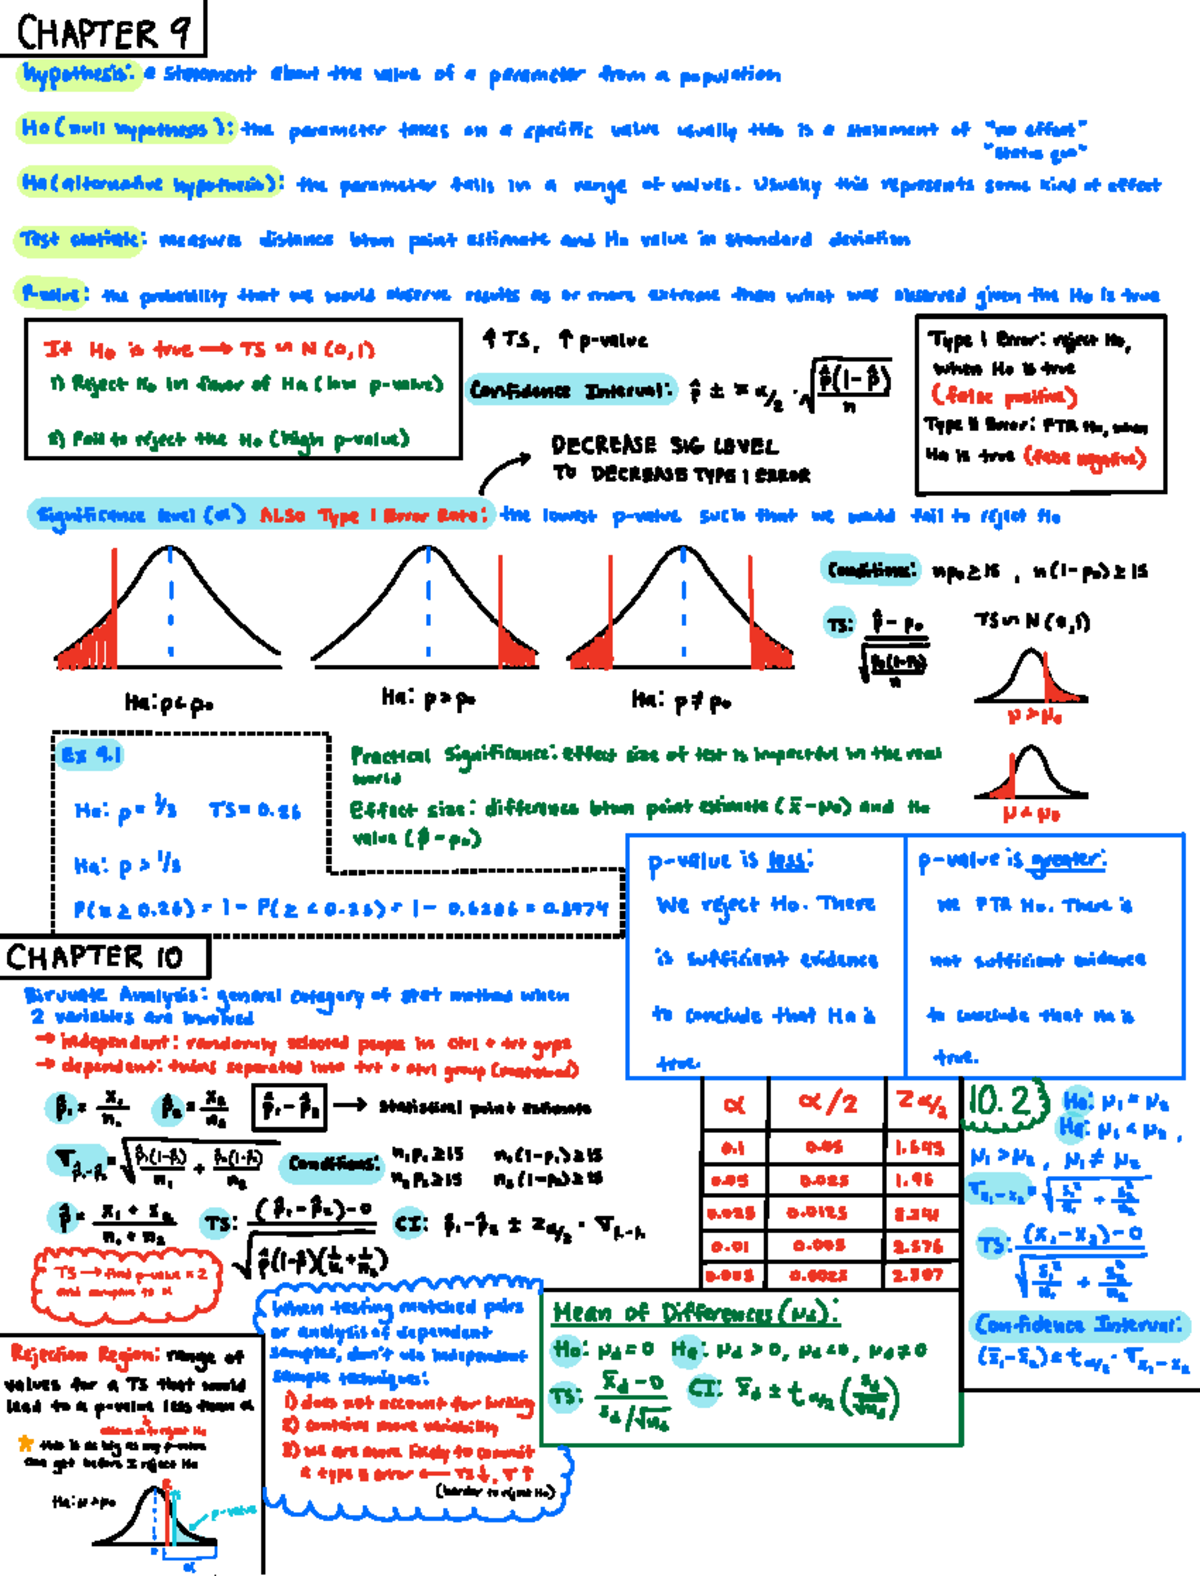 CHAPTER 9
hypothesis: a statement about the value of a parameter from a population
Ho (null hypothesis): the parameter takes on a specific value usually this is a statement of "no effect"
"status quo"
Ha (alternative hypothesis): the parameter falls in a range of values. Usually this represents some kind of effect
Test statistic: measures distance btwn point estimate and Ho value in standard deviation
P-value: the probability that we would observe results as or more extreme than what was observed given the Ho is true
If Ho is true → TS ~ N(0,1)
1) Reject Ho in favor of Ha (low p-value)
2) Fail to reject the Ho (high p-value)
↑ TS, ↑ p-value
Confidence Interval: p̂ ± z α/2 · √(p̂(1-p̂)/n)
DECREASE SIG LEVEL
TO DECREASE TYPE 1 ERROR
Type 1 Error: reject Ho,
when Ho is true
(false positive)
Type II Error: FTR Ho, when
Ha is true (false negative)
Significance level (α) ALSO Type 1 Error Rate: the lowest p-value such that we would fail to reject Ho
Ha: p < p₀
Ha: p > p₀
Ha: p ≠ p₀
Conditions: np₀ ≥ 15, n(1-p₀) ≥ 15
TS: (p̂ - p₀)/√(p₀(1-p₀)/n) TS ~ N(0,1)
μ > μ₀
μ < μ₀
Ex 9.1
Ho: p = 1/3 TS = 0.26
Ha: p > 1/3
P(z ≥ 0.26) = 1 - P(z < 0.26) = 1 - 0.6206 = 0.3974
Practical Significance: effect size of test is impactful in the real
world
Effect size: difference btwn point estimate (x̄ - μ₀) and Ho
value (p̂ - p₀)
p-value is less:
We reject Ho. There
is sufficient evidence
to conclude that Ha is
true.
p-value is greater:
we FTR Ho. There is
not sufficient evidence
to conclude that Ha is
true.
CHAPTER 10
Bivariate Analysis: general category of stat method when
2 variables are involved
→ independent: randomly selected people in ctrl + trt grps
→ dependent: twins separated into trt + ctrl group (matched)
p̂₁ = x₁/n₁ p̂₂ = x₂/n₂ p̂₁ - p̂₂ → statistical point estimate
σ p̂₁-p̂₂ = √(p̂₁(1-p̂₁)/n₁ + p̂₂(1-p̂₂)/n₂) Conditions: n₁p₁ ≥ 15 n₁(1-p₁) ≥ 15
n₂p₂ ≥ 15 n₂(1-p₂) ≥ 15
p̂ = (x₁ + x₂)/(n₁ + n₂) TS: ((p̂₁ - p̂₂) - 0)/√(p̂(1-p̂)(1/n₁ + 1/n₂)) CI: p̂₁ - p̂₂ ± z α/2 · σ p̂₁-p̂₂
TS → find p-value x 2
and compare to α
α α/2 Z α/2
0.1 0.05 1.645
0.05 0.025 1.96
0.025 0.0125 2.241
0.01 0.005 2.576
0.005 0.0025 2.807
10.2
Ho: μ₁ = μ₂
Ha: μ₁ < μ₂,
μ₁ > μ₂, μ₁ ≠ μ₂
σ x̄₁-x̄₂ = √(s₁²/n₁ + s₂²/n₂)
TS: ((x̄₁ - x̄₂) - 0)/√(s₁²/n₁ + s₂²/n₂)
Confidence Interval:
(x̄₁ - x̄₂) ± t α/2 · σ x̄₁-x̄₂
Rejection Region: range of
values for a TS that would
lead to a p-value less than α
this is as big as my p-value
can get before I reject Ho
Ha: μ > μ₀
TS
p-value
α
When testing matched pairs
or analysis of dependent
samples, don't use independent
sample techniques:
1) does not account for
2) contains more variability
3) we are more likely to commit
a type II error ← TS ↓, σ ↑
(harder to reject Ho)
Mean of Differences (μd):
Ho: μd = 0 Ha: μd > 0, μd < 0, μd ≠ 0
TS: (x̄d - 0)/(sd/√nd) CI: x̄d ± t α/2 (sd/√nd)